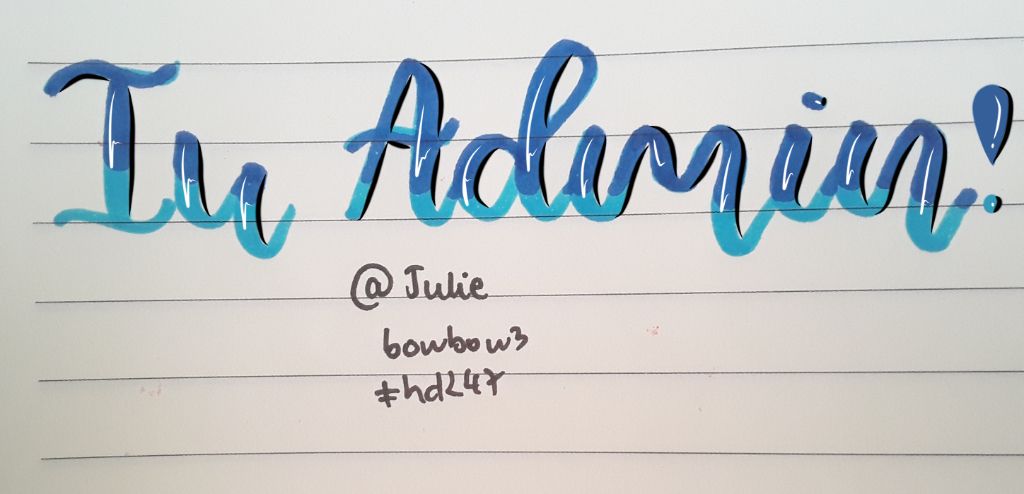 Iu Admin!
@Julie
bowbow3
#hd247